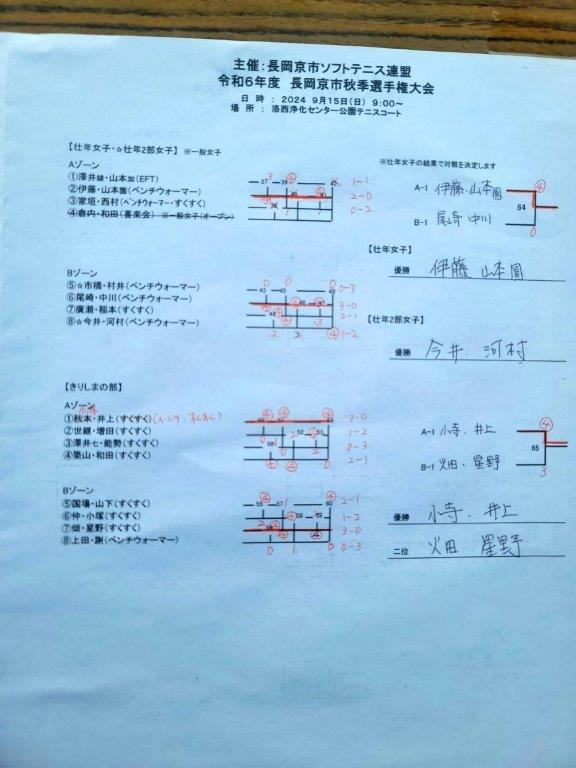 主催：長岡京市ソフトテニス連盟
令和6年度 長岡京市秋季選手権大会
日 時 : 2024 9月15日(日) 9:00～
場 所 : 洛西浄化センター公園テニスコート
【壮年女子・☆壮年2部女子】 ※一般女子
※壮年女子の結果で対戦を決定します
Aゾーン
①澤井綾・山本加(EFT) 1-1
②伊藤・山本園(ベンチウォーマー) 2-0
③家垣・西村(ベンチウォーマー・すくすく) 0-2
④倉内・和田(喜楽会) ※一般女子(オープン)
A-1 伊藤・山本園 ④
64
B-1 尾崎 中川 0
【壮年女子】
優勝 伊藤 山本園
Bゾーン
⑤☆市橋・村井(ベンチウォーマー) 0-3
⑥尾崎・中川(ベンチウォーマー) 3-0
⑦廣瀬・稲本(すくすく) 2-1
⑧☆今井・河村(ベンチウォーマー) 1-2
【壮年2部女子】
優勝 今井. 河村
【きりしまの部】
Aゾーン
小寺
①秋本・井上(すくすく)(ベンチ・すくすく) 3-0
②世継・増田(すくすく) 1-2
③澤井七・能勢(すくすく) 0-3
④築山・和田(すくすく) 2-1
A-1 小寺. 井上 ④
65
B-1 畑. 星野 3
Bゾーン
⑤国場・山下(すくすく) 2-1
⑥仲・小塚(すくすく) 1-2
⑦畑・星野(すくすく) 3-0
⑧上田・謝(ベンチウォーマー) 0-3
優勝 小寺. 井上
二位 畑 星野